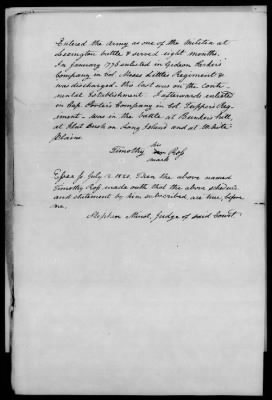 Entered the Army as one of the Militia at
Lexington battle & served eight months.
In January 1776 enlisted in Gideon Parker's
Company in Col. Moses Littles Regiment &
was discharged. this last was on the Conti-
nental Establishment. I afterwards enlisted
in Cap. Company in Col. Tupper's Reg-
iment - was in the battle at Bunkers hill,
at Flat bush on Long Island and at White
Plains
his
Timothy Ross
mark
Essex ss July 12 1820. Then the above named
Timothy Ross made oath that the above schedule
and statement by him subscribed, are true, before
me,
Stephen Minot, Judge of said Court